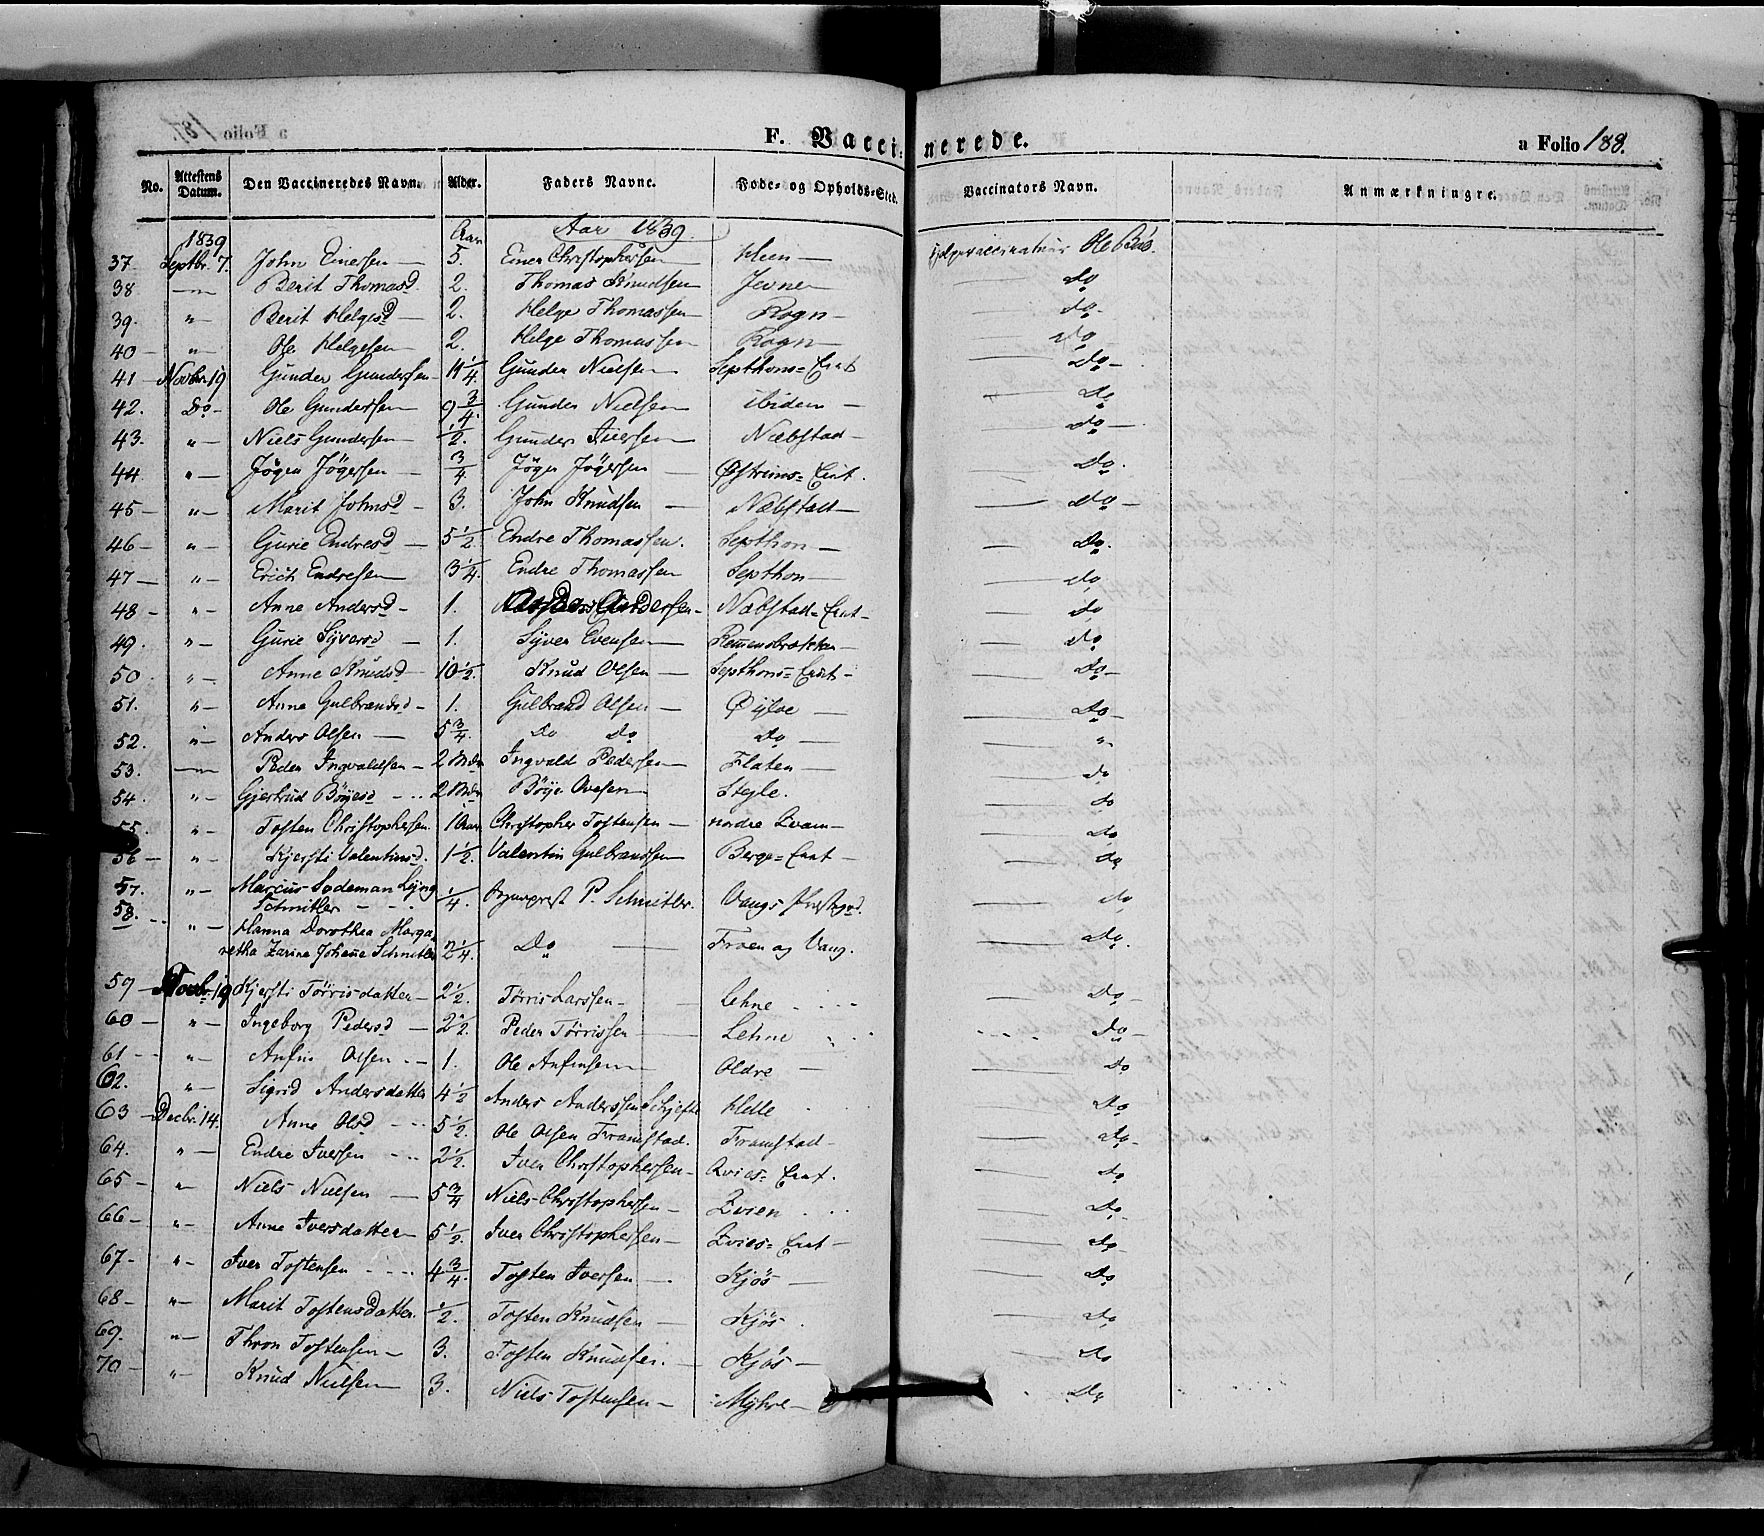 F. Vaccinerede. a Folio 188.
No. Attestens Datum. Den Vaccineredes Navn. Alder. Faders Navne. Føde- og Opholds-Sted. Vaccinators Navn. Anmærkninger.
1839 Aar Aar 1839.
37. Septbr. 7. John Einersen 5. Einer Christophersen Heen Hjelpevaccinatør Ole Bøe.
38 — Berit Thomasd 2. Thomas Knudsen Jevne Do
39. " Berit Helgesd 2. Helge Thomassen Rogn do
40 " Ole Helgesen 2. Helge Thomassen Rogn do
41 Novbr. 19 Gunder Gundersen 11 1/4. Gunder Nielsen Septhons=Eent Do
42. Do Ole Gundersen 9 3/4. Gunder Nielsen ibidem Do
43. " Niels Gundersen 1/2. Gunder Iversen Næbstad do
44 " Jøgen Jøgersen 3/4 Jøger Jøgersen Østreims=Eent. Do.
45 " Marit Johnsd 3. John Knudsen Næbstad Do
46 " Gurie Endresd 5 1/2. Endre Thomassen. Septhon Do.
47 " Erich Endresen 3 1/4. Endre Thomassen Septhon do
48 " Anne Andersd 1. Andersen Næbstad=Eent do
49. " Gurie Syversd 1. Syver Evensen Remensbrækken do
50 " Anne Knudsd 10 1/2. Knud Olsen Septhons=Eent Do
51. " Anne Gulbrandsd 1. Gulbrand Olsen Øyloe Do
52. " Anders Olsen 5 3/4. Do Do Do "
53. — Peder Ingvaldsen 2 Mdr Ingvald Pedersen Flaten do
54. " Gjertrud Böyesd 2 Mdr Böye Ovesen Steyle. do
55. " Tosten Christophersen. 1 Aar Christopher Tostensen nordre Qvam do
56 " Kjersti Valentinsd. 1 1/2. Valentin Gulbrandsen Berge=Eent do
57. " Marcus Sodeman Lyng Schnitler 1/4. P. Schnitler. Vangs Præstegrd. do
58. " Hanna Dorothea Marga
retha Zarine Johanne Schnitler 2 1/4. Do Froen og Vang. do.
59 Novbr. 19 Kjersti Törrisdatter 2 1/2. Törris Larssen Lehne Do
60 " Ingeborg Pedersd 2 1/2. Peder Törrissen Lehne Do
61 " Anfin Olsen 1. Ole Anfinsen Oldre Do
62. " Sigrid Andersdatter 4 1/2 Anders Anderssen Schjefte Helle Do
63 Decbr. 14. Anne Olsd 5 1/2. Ole Olsen Framstad. Framstad do
64. " Endre Iversen 2 1/2. Iver Christophersen Qvies=Eent. Do
65 " Niels Nielsen 5 3/4 Niels Christophersen Qvien Do
66 " Anne Iversdatter 5 1/2. Iver Christophersen Qvies=Eent do
67 " Iver Tostensen 4 3/4. Tosten Iversen Kjös Do
68 " Marit Tostensdatter. 1/2. Tosten Knudsen Kjös. do
69. " Thron Tostensen 3. Tosten Knudsen. Kjös do
70 " Knud Nielsen 3. Niels Tostensen Myhre Do